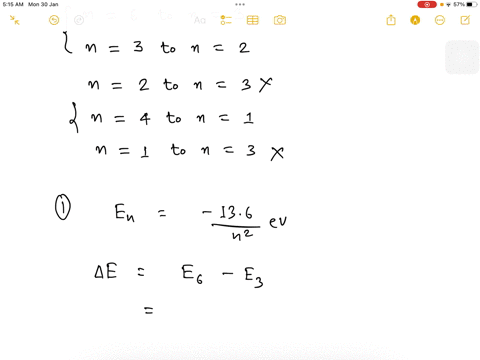 5:15 AM Mon 30 Jan
57%
Aa
{ n = 3 to n = 2
n = 2 to n = 3 ×
{ n = 4 to n = 1
n = 1 to n = 3 ×
① Eₙ = -13.6/n² ev
ΔE = E₆ - E₃
=